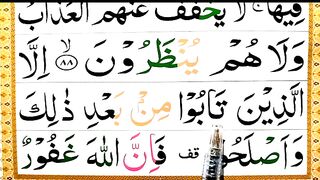 فِيْهَا ۚ لَا يُخَفَّفُ عَنْهُمُ الْعَذَابُ
وَلَا هُمْ يُنْظَرُوْنَ ﴿۸۸﴾ اِلَّا
الَّذِيْنَ تَابُوْا مِنْۢ بَعْدِ ذٰلِكَ
وَاَصْلَحُوْا ۟قف فَاِنَّ اللّٰهَ غَفُوْرٌ